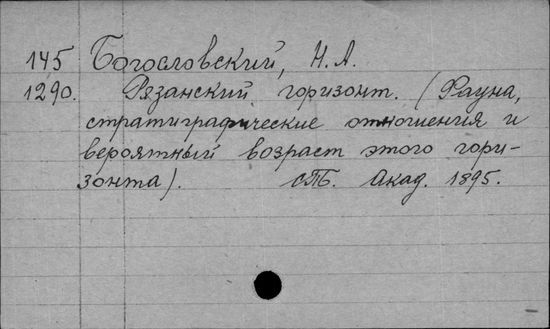 145 Богословский, Н. А.
1290. Рязанский горизонт. (Фауна,
стратиграфические отношения и
вероятный возраст этого гори-
зонта). СПб. Акад. 1895.